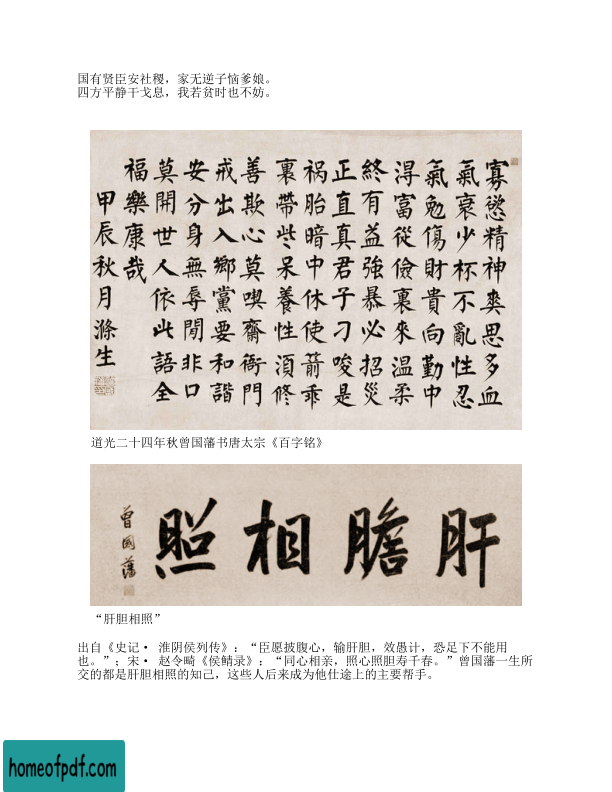 国有贤臣安社稷，家无逆子恼爹娘。
四方平静干戈息，我若贫时也不妨。
寡慾精神爽思多血
氣衰少杯不亂性忍
氣勉傷財貴向勤中
淂富從儉裏來温柔
終有益強暴必招災
正直真君子刁唆是
祸胎暗中休使箭乖
裏帶些呆養性湏修
善欺心莫喫齋衙門
戒出入鄉黨要和諧
安分身無辱閒非口
莫開世人依此語全
福樂康哉
甲辰秋月滌生
道光二十四年秋曾国藩书唐太宗《百字铭》
肝膽相照
曾國藩
“肝胆相照”
出自《史记· 淮阴侯列传》：“臣愿披腹心，输肝胆，效愚计，恐足下不能用
也。”；宋· 赵令畸《侯鲭录》：“同心相亲，照心照胆寿千春。”曾国藩一生所
交的都是肝胆相照的知己，这些人后来成为他仕途上的主要帮手。
homeofpdf.com